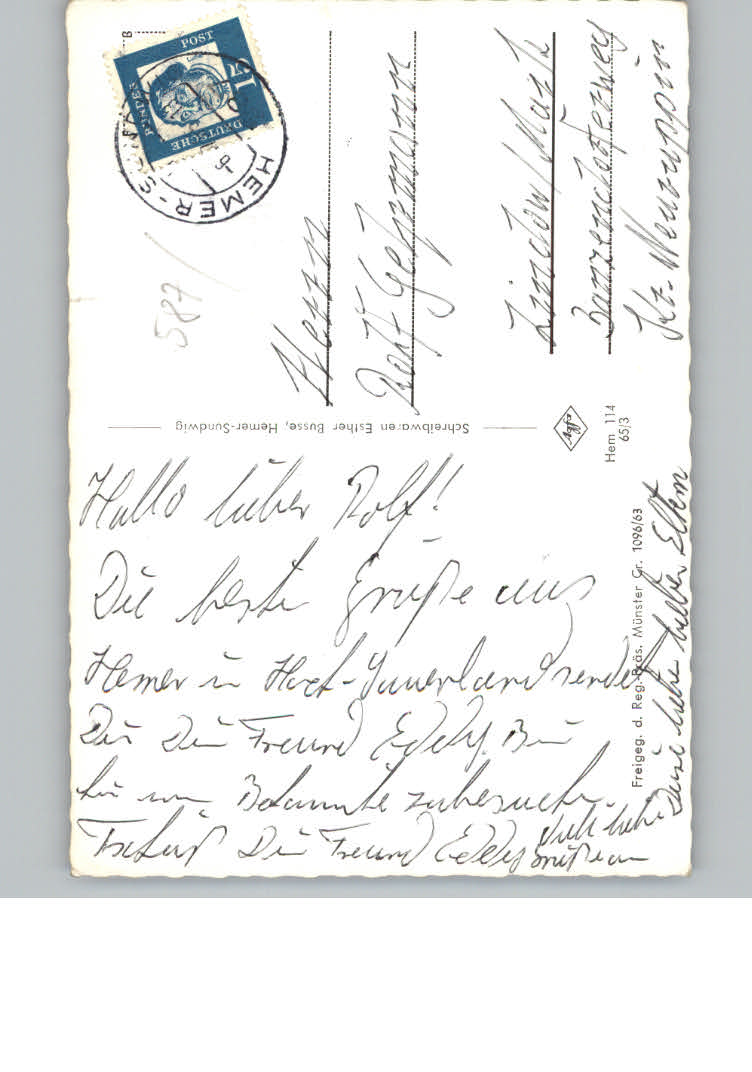 Hallo lieber Rolf!
Die beste Grüße aus
Hemer in Hoch-Sauerland sendet
Dir Dein Freund Eddy. Bin
hier um Bekannte zubesuche.
Tschüß Dein Freund Eddy
Viele liebe
Grüße an
Deine liebe lieben Eltern
Schreibwaren Esther Busse, Hemer-Sundwig
Hem 114
65/3
Freigeg. d. Reg.-Präs. Münster Gr. 1096/63
Herrn
Rolf
Lindow/Mark
Banzendorferweg
Kr. Neuruppin
587/
DEUTSCHE
BUNDES
POST
15
HEMER-SUNDWIG